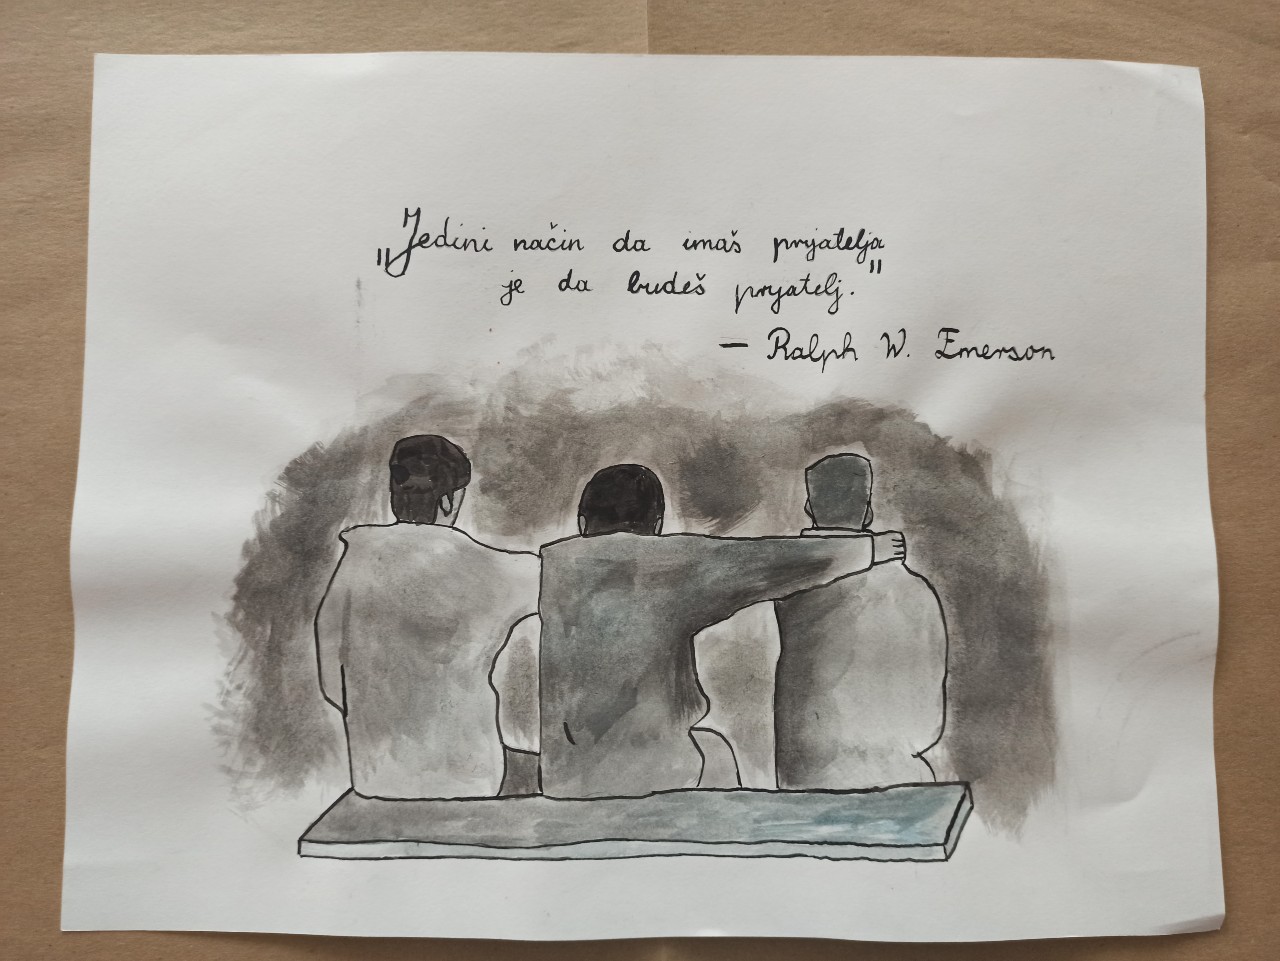 "Jedini način da imaš prijatelja
je da budeš prijatelj."
— Ralph W. Emerson